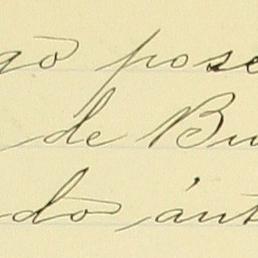 go pose
de Bu
do ánt